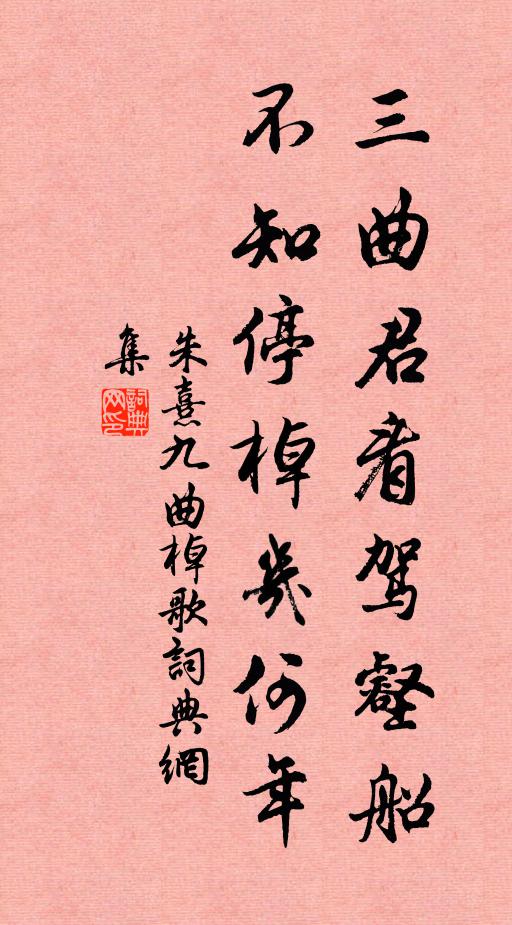 三曲君看駕壑船
不知停棹幾何年
朱熹九曲棹歌詞典網
集
詞典網印